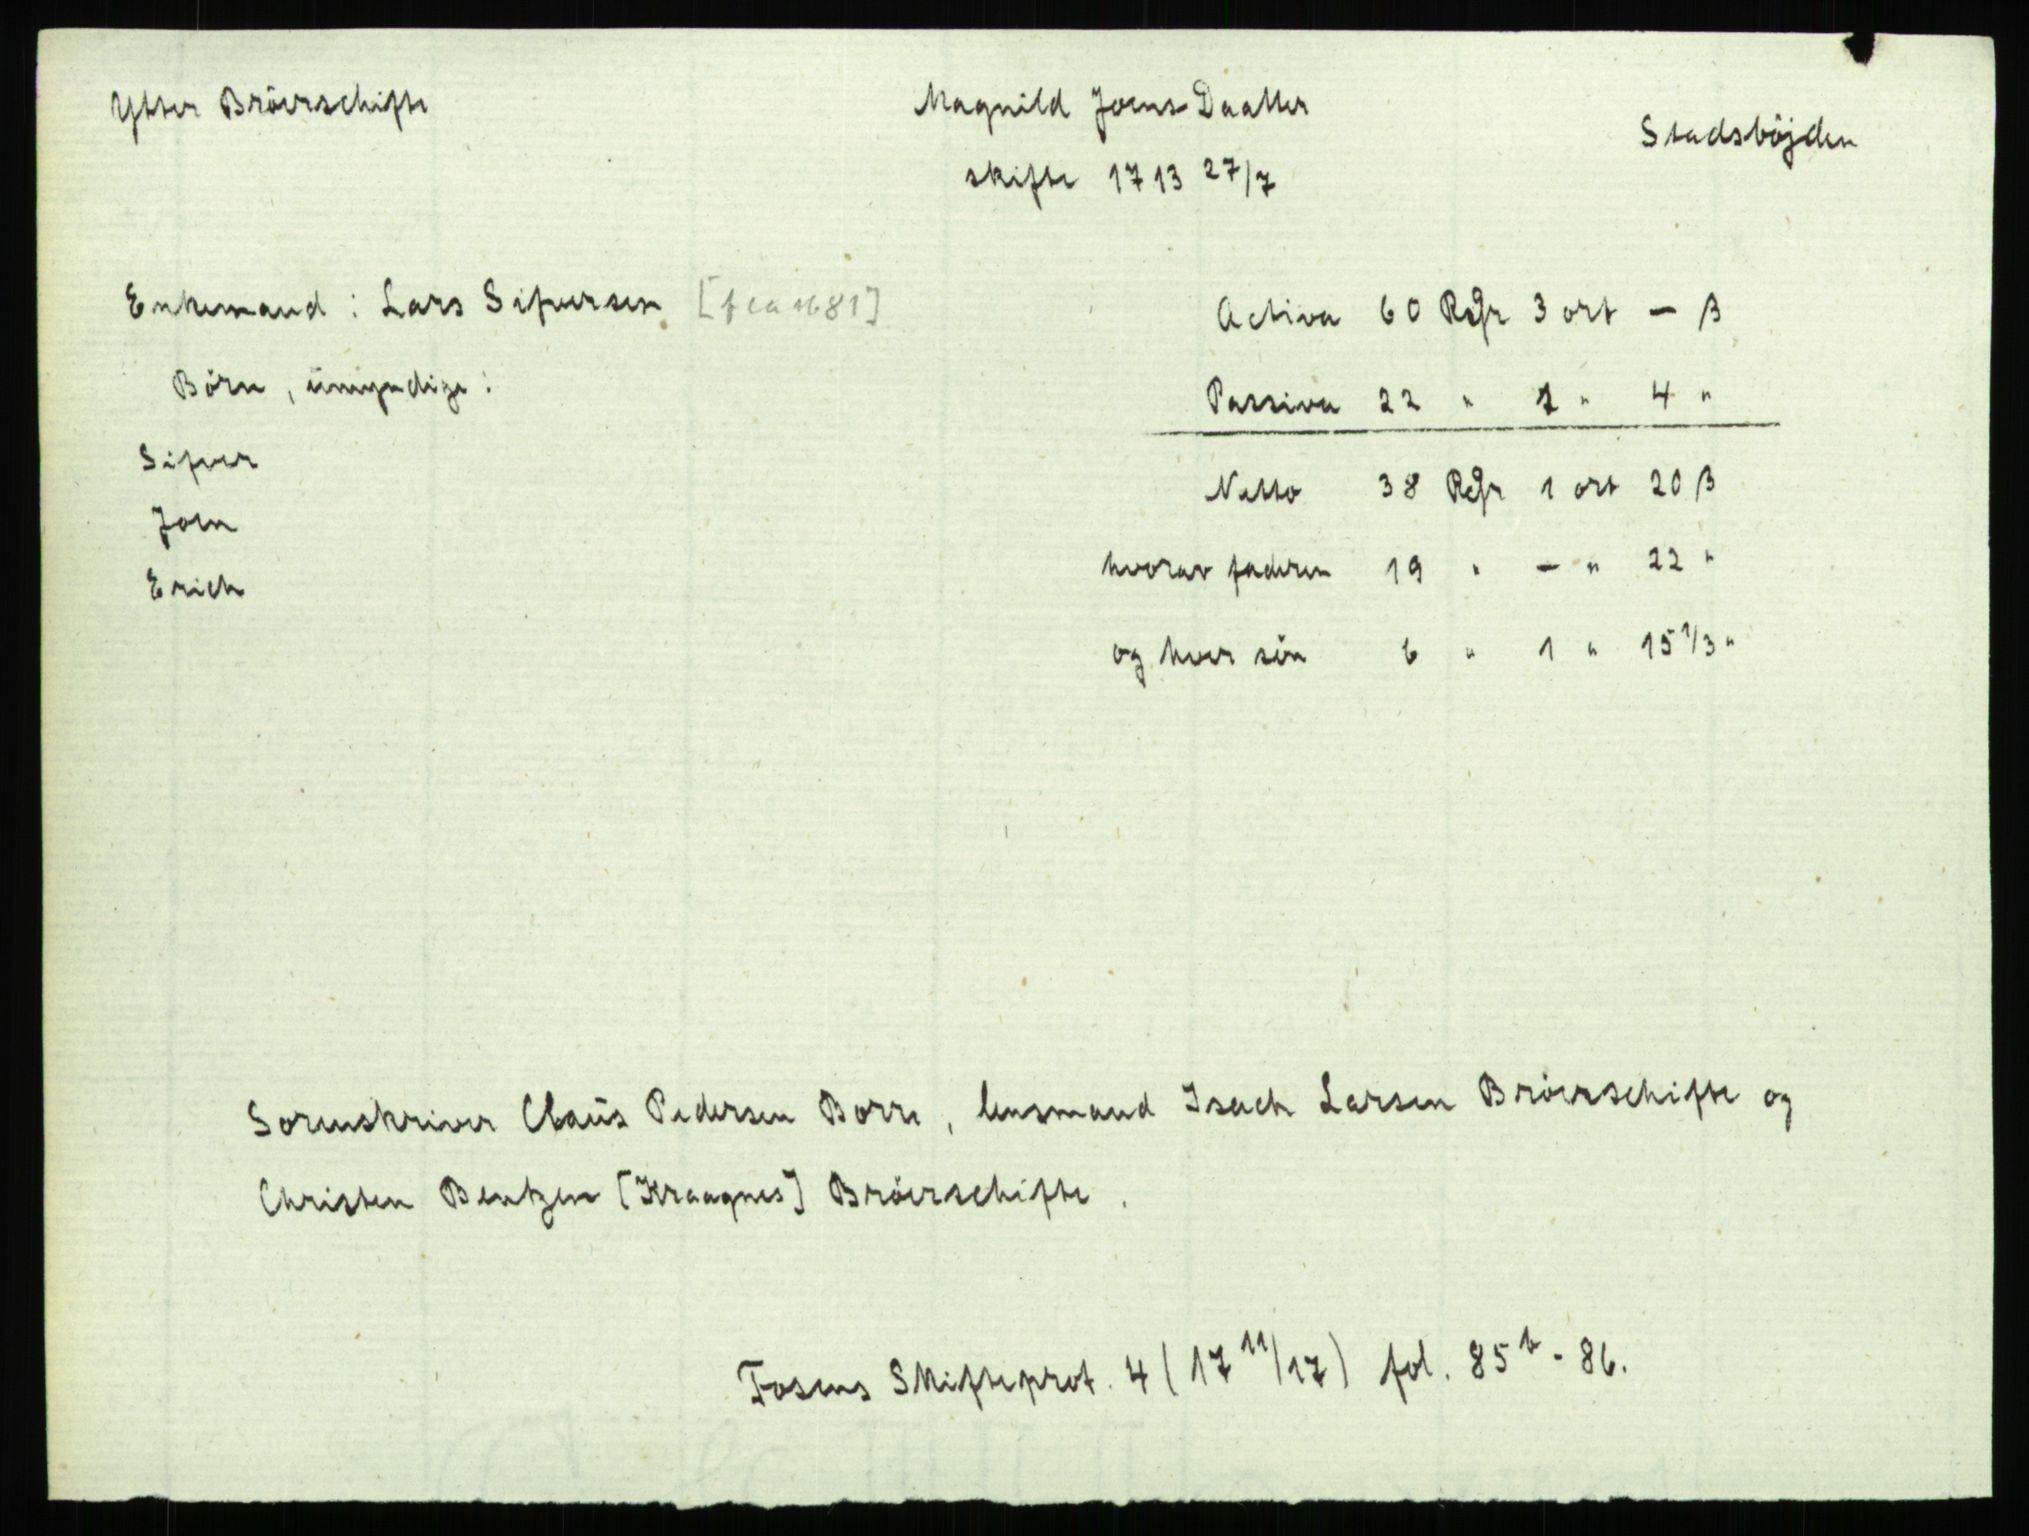 Ytter Bröerschifte
Magnild Joens Daatter
Stadsböjden
skifte 1713 27/7
Enkemand : Lars Sifversen [f ca 1681]
Activa 60 Rdr 3 ort — β
Börn, ūmyndige :
Passiva 22 " 1 " 4 "
Sifver
Netto 38 Rdr 1 ort 20 β
Joen
hvorav faderen 19 " — " 22 "
Erich
og hver sön 6 " 1 " 15 1/3 "
Sorenskriver Claūs Pedersen Borre, lensmand Isach Larsen Bröerschifte og
Christen Bentzen [Kraagnes] Bröerschifte.
Fosens Skifteprot. 4 (17 11/17) fol. 85 b - 86.